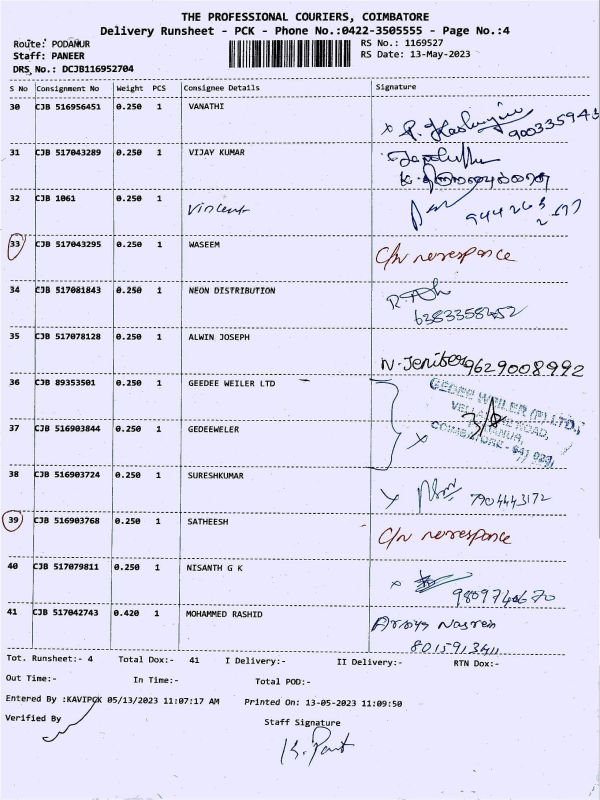 THE PROFESSIONAL COURIERS, COIMBATORE
Delivery Runsheet - PCK - Phone No.:0422-3505555 - Page No.:4
Route: PODANUR RS No.: 1169527
Staff: PANEER RS Date: 13-May-2023
DRS No.: DCJB116952704
S No Consignment No Weight PCS Consignee Details Signature
30 CJB 516956451 0.250 1 VANATHI
900335943
31 CJB 517043289 0.250 1 VIJAY KUMAR
32 CJB 1061 0.250 1 Vincent
33 CJB 517043295 0.250 1 WASEEM C/n no response
34 CJB 517081843 0.250 1 NEON DISTRIBUTION
6383358452
35 CJB 517078128 0.250 1 ALWIN JOSEPH
N. Jenifer 9629008992
36 CJB 89353501 0.250 1 GEEDEE WEILER LTD
GEDEE WEILER (P) LTD.,
37 CJB 516903844 0.250 1 GEDEEWELER
COIMBATORE - 641 023
38 CJB 516903724 0.250 1 SURESHKUMAR
7904443172
39 CJB 516903768 0.250 1 SATHEESH C/n no response
40 CJB 517079811 0.250 1 NISANTH G K
9809740670
41 CJB 517042743 0.420 1 MOHAMMED RASHID
8015913411
Tot. Runsheet:- 4 Total Dox:- 41 I Delivery:- II Delivery:- RTN Dox:-
Out Time:- In Time:- Total POD:-
Entered By :KAVIPCK 05/13/2023 11:07:17 AM Printed On: 13-05-2023 11:09:50
Verified By Staff Signature